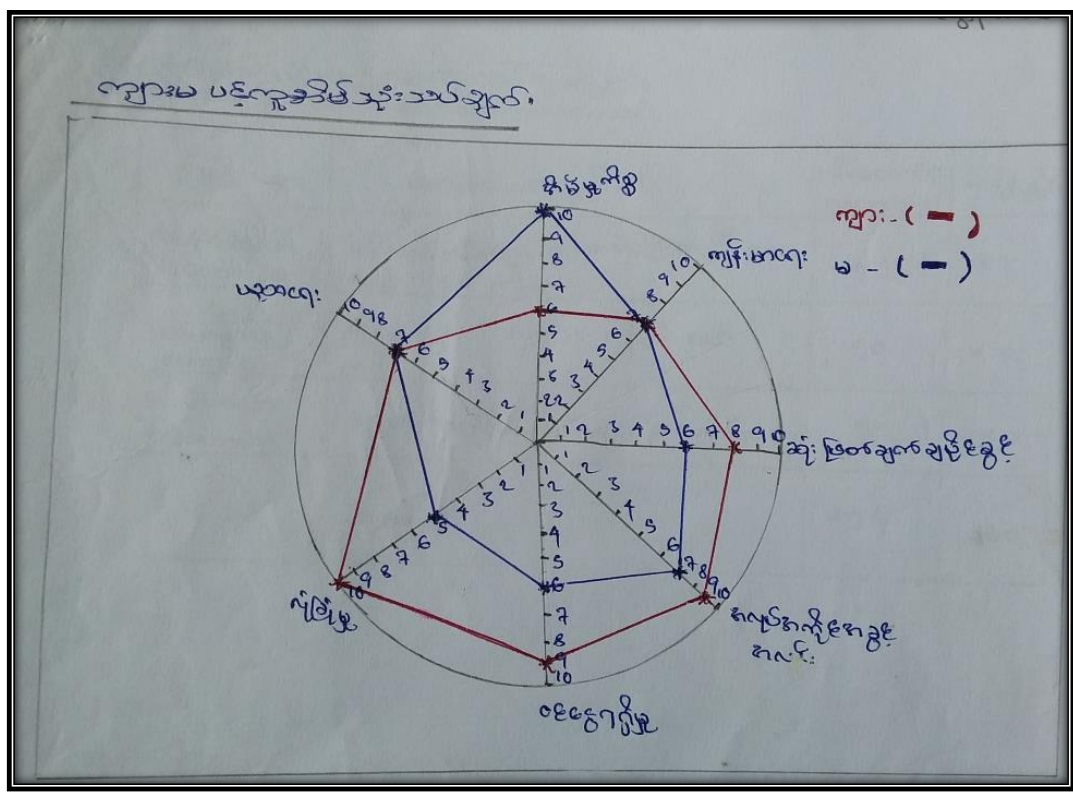 ကျားမ ပင့်ကူအိမ်သုံးသပ်ချက်။
အိမ်မှုကိစ္စ
ကျား - ( - )
ကျန်းမာရေး
မ - ( - )
ပညာရေး
ဆုံးဖြတ်ချက်ချပိုင်ခွင့်
လုံခြုံမှု
အလုပ်အကိုင်အခွင့်
အလမ်း
ဝင်ငွေရရှိမှု
10
9
8
7
6
5
4
6
3
22
1
1 2 3 4 5 6 7 8 9 10
1 2 3 4 5 6 7 8 9 10
1 2 3 4 5 6 7 8 9 10
1 2 3 4 5 6 7 8 9 10
1 2 3 4 5 6 7 8 9 10